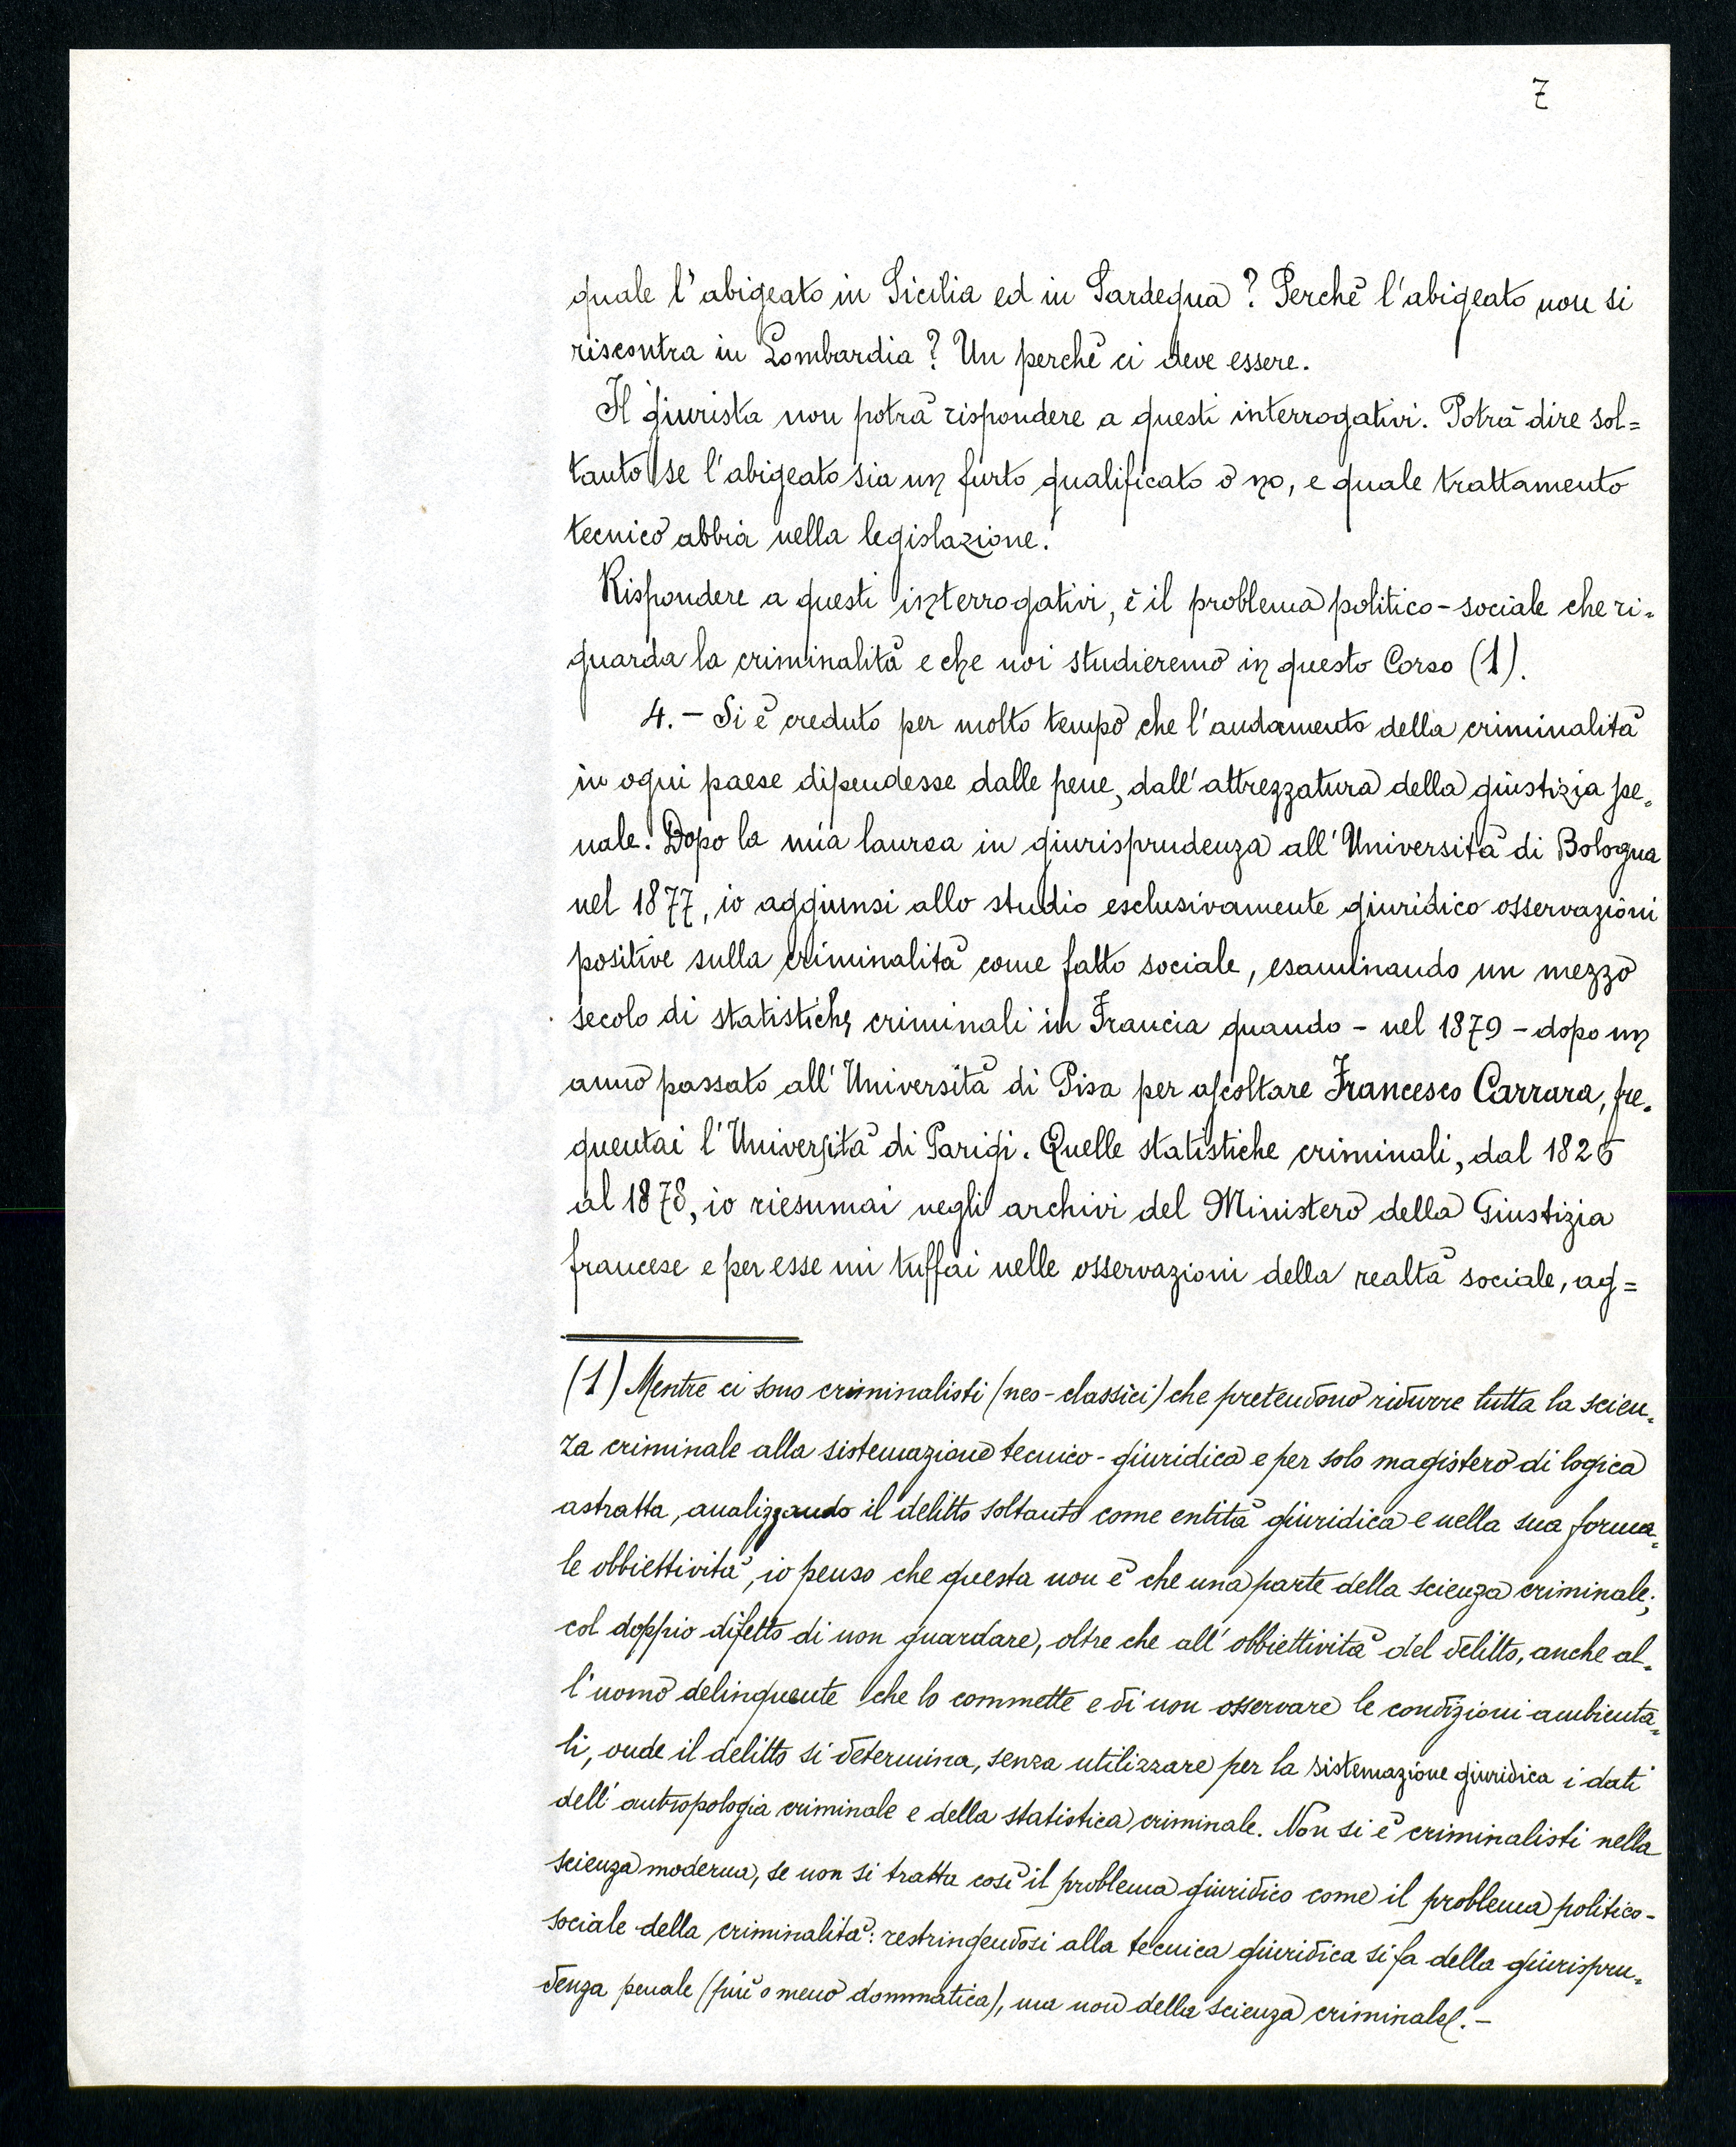 7
quale l'abigeato in Sicilia ed in Sardegna? Perchè l'abigeato non si
riscontra in Lombardia? Un perchè ci deve essere.
Il giurista non potrà rispondere a questi interrogativi. Potrà dire sol=
tanto se l'abigeato sia un furto qualificato o no, e quale trattamento
tecnico abbia nella legislazione.
Rispondere a questi interrogativi, è il problema politico-sociale che ri=
guarda la criminalità e che noi studieremo in questo Corso (1).
4.- Si è creduto per molto tempo che l'andamento della criminalità
in ogni paese dipendesse dalle pene, dall'attrezzatura della giustizia pe=
nale. Dopo la mia laurea in giurisprudenza all'Università di Bologna
nel 1877, io aggiunsi allo studio esclusivamente giuridico osservazioni
positive sulla criminalità come fatto sociale, esaminando un mezzo
secolo di statistiche criminali in Francia quando - nel 1879 - dopo un
anno passato all'Università di Pisa per ascoltare Francesco Carrara, fre=
quentai l'Università di Parigi. Quelle statistiche criminali, dal 1826
al 1878, io riesumai negli archivi del Ministero della Giustizia
francese e per esse mi tuffai nelle osservazioni della realtà sociale, ag=
(1) Mentre ci sono criminalisti (neo-classici) che pretendono ridurre tutta la scien=
za criminale alla sistemazione tecnico-giuridica e per solo magistero di logica
astratta, analizzando il delitto soltanto come entità giuridica e nella sua forma=
le obbiettività, io penso che questa non è che una parte della scienza criminale;
col doppio difetto di non guardare, oltre che all'obbiettività del delitto, anche al=
l'uomo delinquente che lo commette e di non osservare le condizioni ambienta=
li, onde il delitto si determina, senza utilizzare per la sistemazione giuridica i dati
dell'antropologia criminale e della statistica criminale. Non si è criminalisti nella
scienza moderna, se non si tratta così il problema giuridico come il problema politico-
sociale della criminalità: restringendosi alla tecnica giuridica si fa della giurispru=
denza penale (più o meno dommatica), ma non della scienza criminale.-